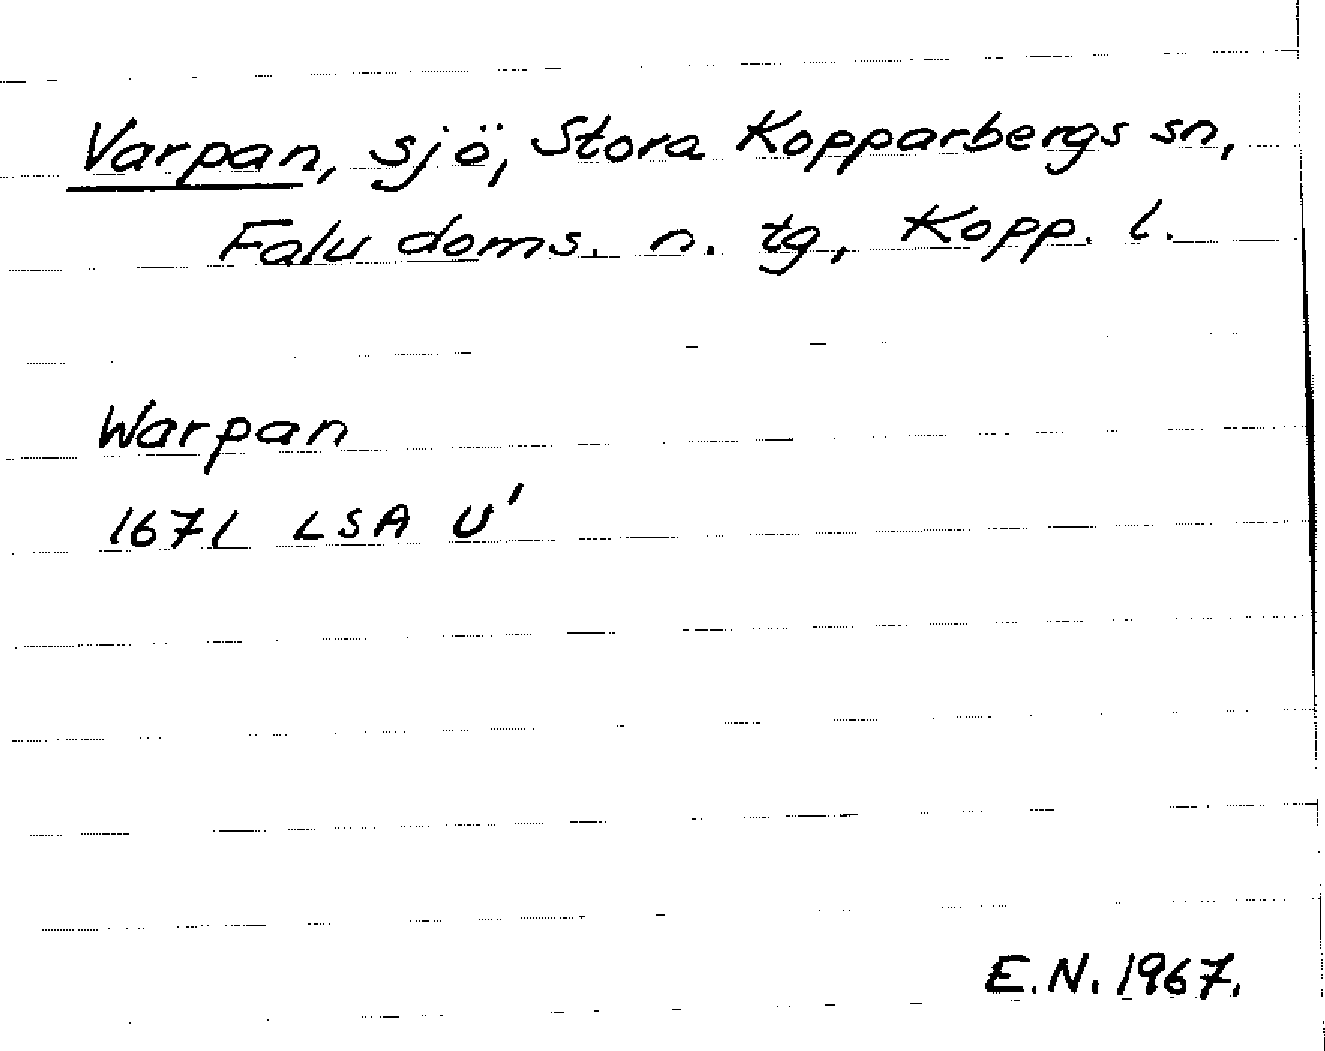 Varpan, sjö, Stora Kopparbergs sn,
Falu doms. n. tg, Kopp. l.
Warpan
1671 LSA U'
E.N. 1967.